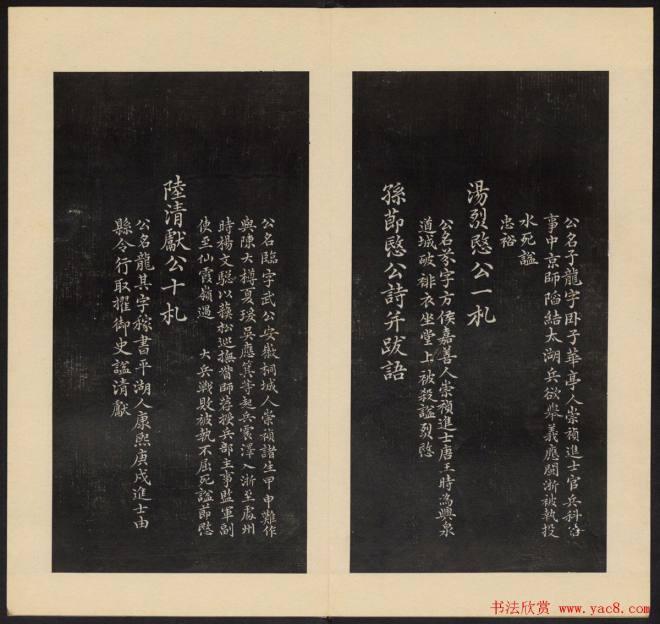 公名子龍字卧子華亭人崇禎進士官兵科給
事中京師陷結太湖兵欲舉義應閩浙被執投
水死謚
忠裕
湯烈愍公一札
公名芬字方侯嘉善人崇禎進士唐王時為興泉
道城破緋衣坐堂上被殺謚烈愍
孫節愍公詩并跋語
公名臨字武公安徽桐城人崇禎諸生甲申難作
與陳大樽夏瑗吳應箕等起兵震澤入浙至處州
時楊文驄以蘇松巡撫督師薦授兵部主事監軍副
使至仙霞嶺遇 大兵戰敗被執不屈死謚節愍
陸清獻公十札
公名龍其字稼書平湖人康熙庚戌進士由
縣令行取擢御史謚清獻
书法欣赏 www.yac8.com